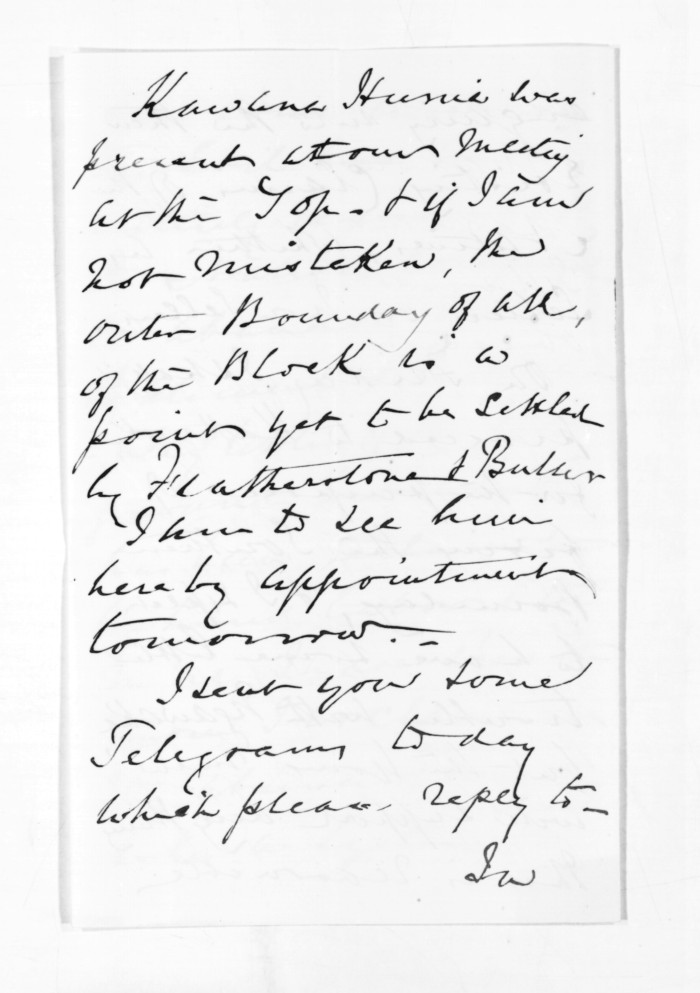 Kawana Hunia was
present at our Meeting
at the Top. & if I am
not mistaken, the
outer Boundary of all,
of the Block is a
point yet to be settled
by Featherstone & Buller
I am to see him
here by appointment
tomorrow. –
I sent you some
Telegrams today
which please reply to –
In